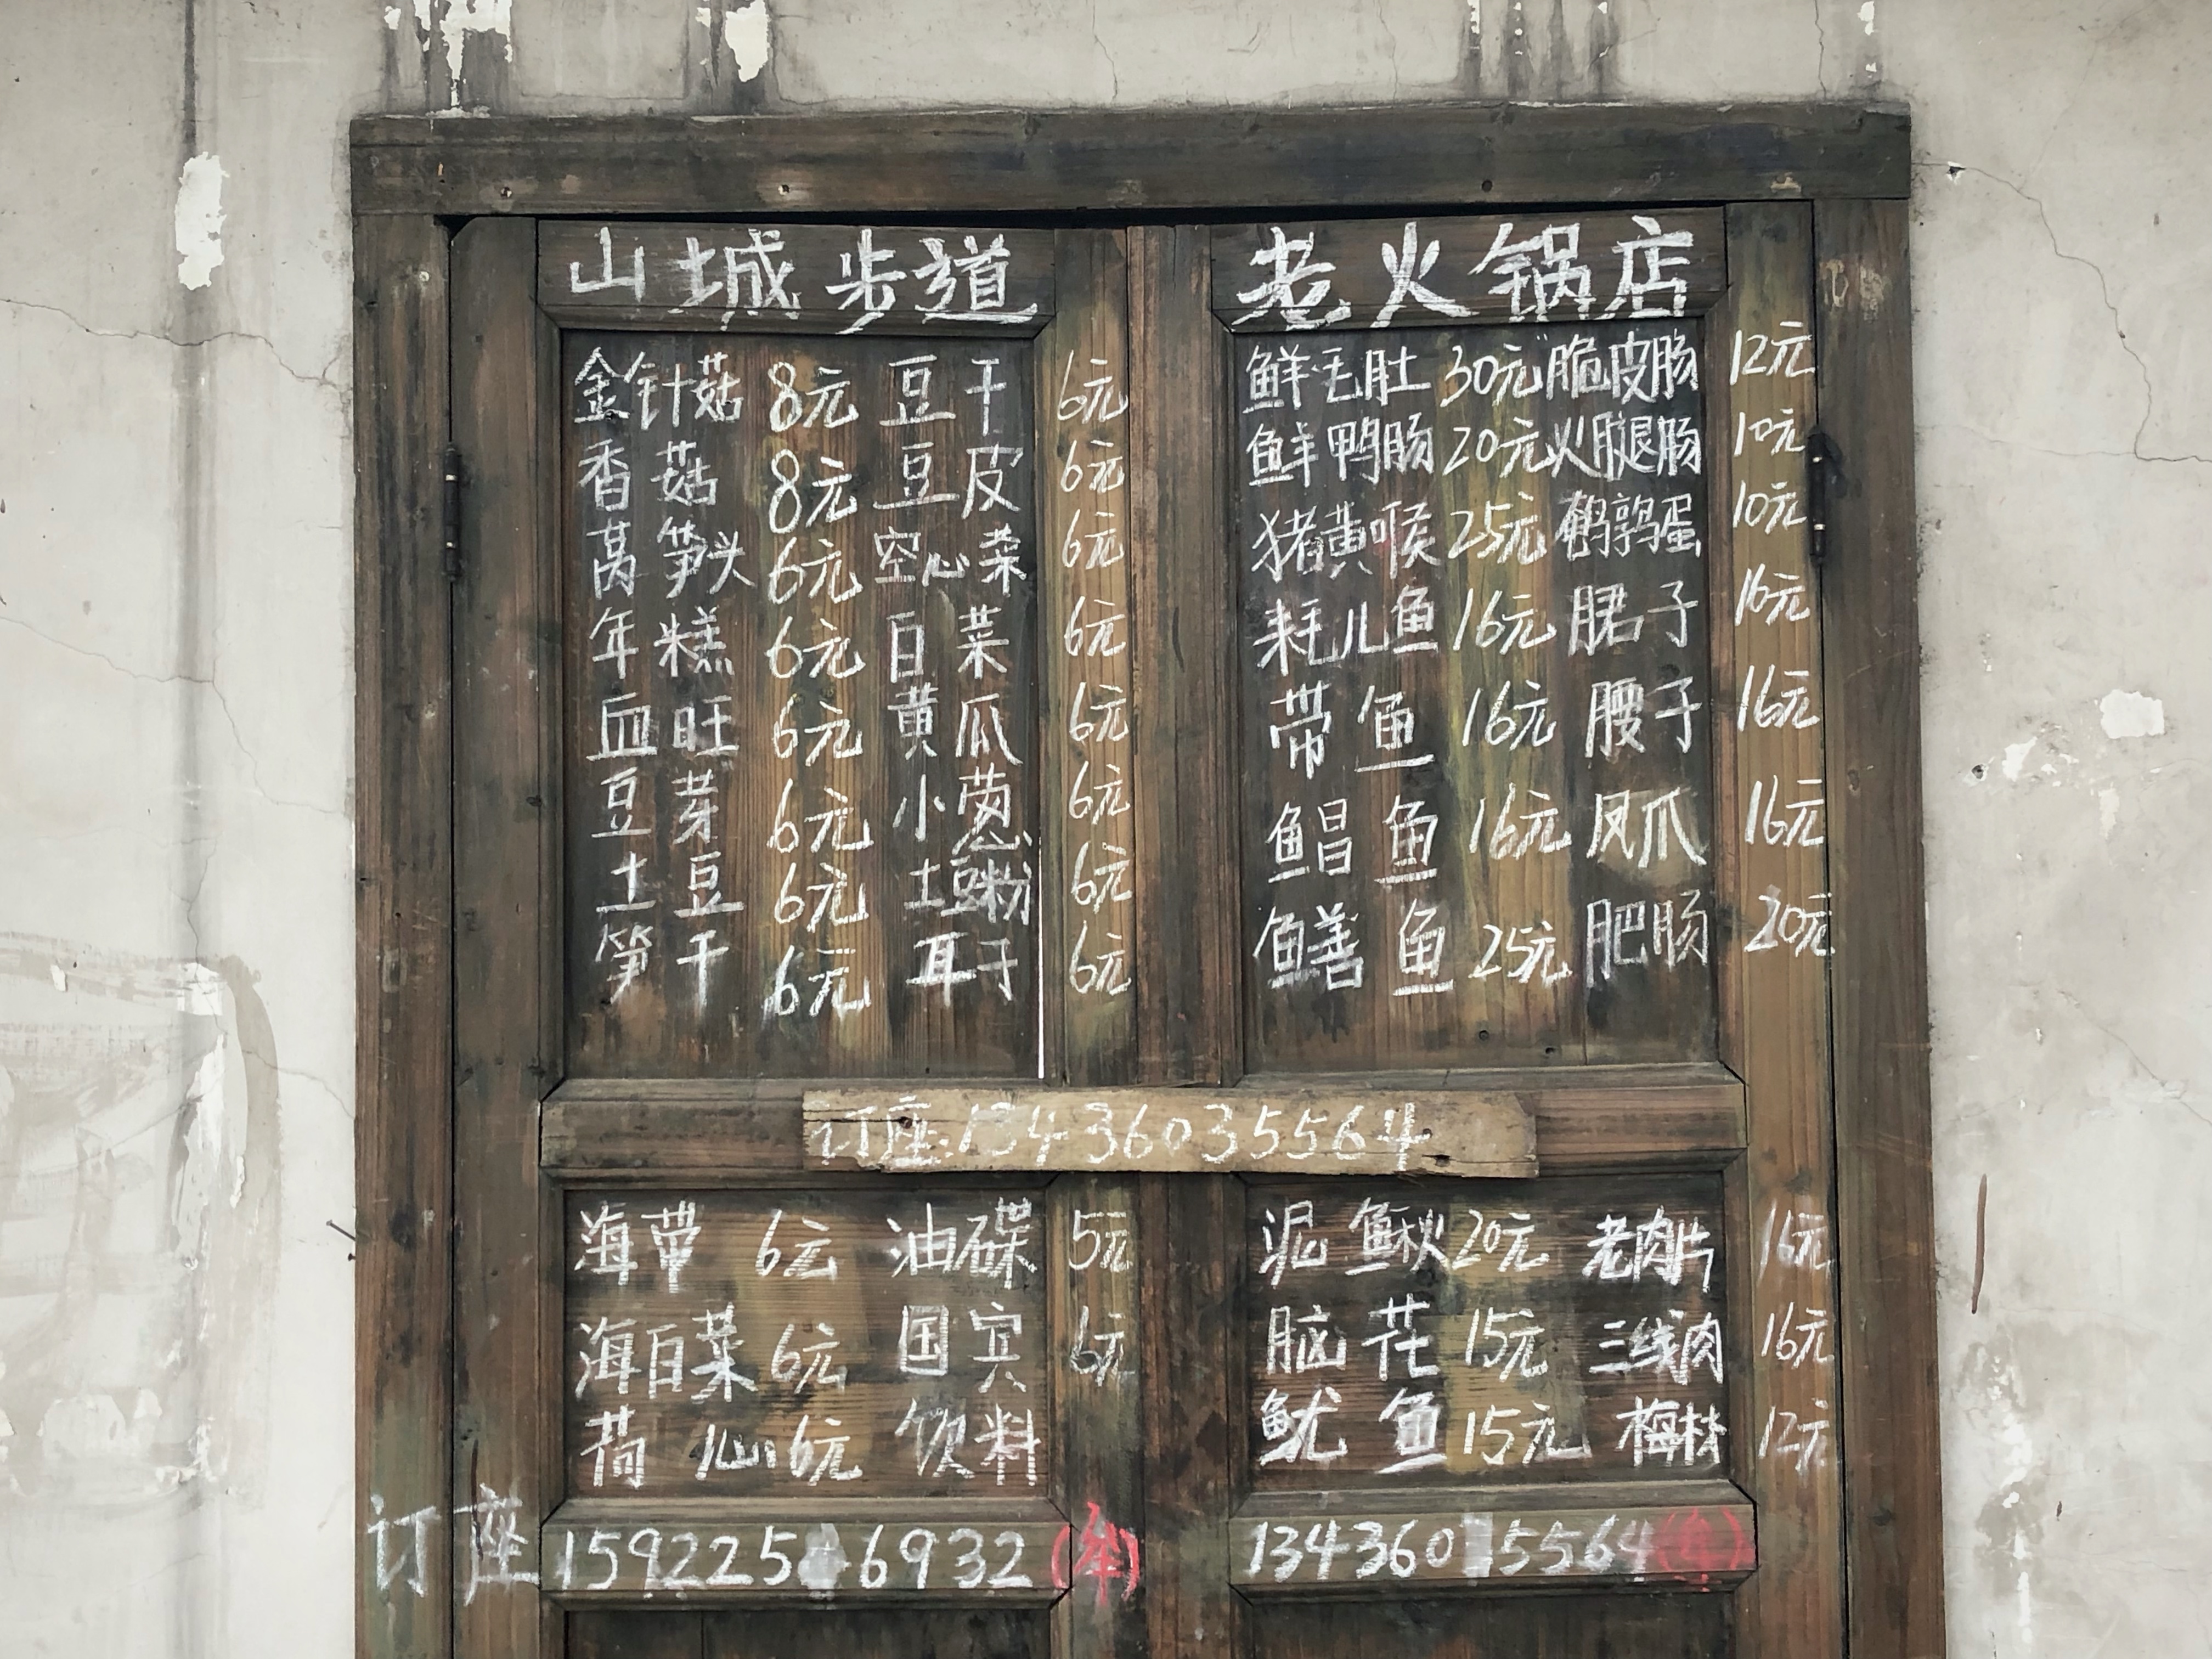 山城步道 老火锅店
金针菇 8元 豆干 6元
香菇 8元 豆皮 6元
莴笋头 6元 空心菜 6元
年糕 6元 白菜 6元
血旺 6元 黄瓜 6元
豆芽 6元 小葱 6元
土豆 6元 土豆粉 6元
笋干 6元 耳子 6元
鲜毛肚 30元 脆皮肠 12元
鲜鸭肠 20元 火腿肠 10元
猪黄喉 25元 鹌鹑蛋 10元
耗儿鱼 16元 𦛨子 16元
带鱼 16元 腰子 16元
鲳鱼 16元 凤爪 16元
鳝鱼 25元 肥肠 20元
订座:13436035564
海带 6元 油碟 5元
海白菜 6元 国宾 6元
荷心 6元 饮料
泥鳅 20元 老肉片 16元
脑花 15元 三线肉 16元
鱿鱼 15元 梅林 12元
订座 159225 6932
134360 5564